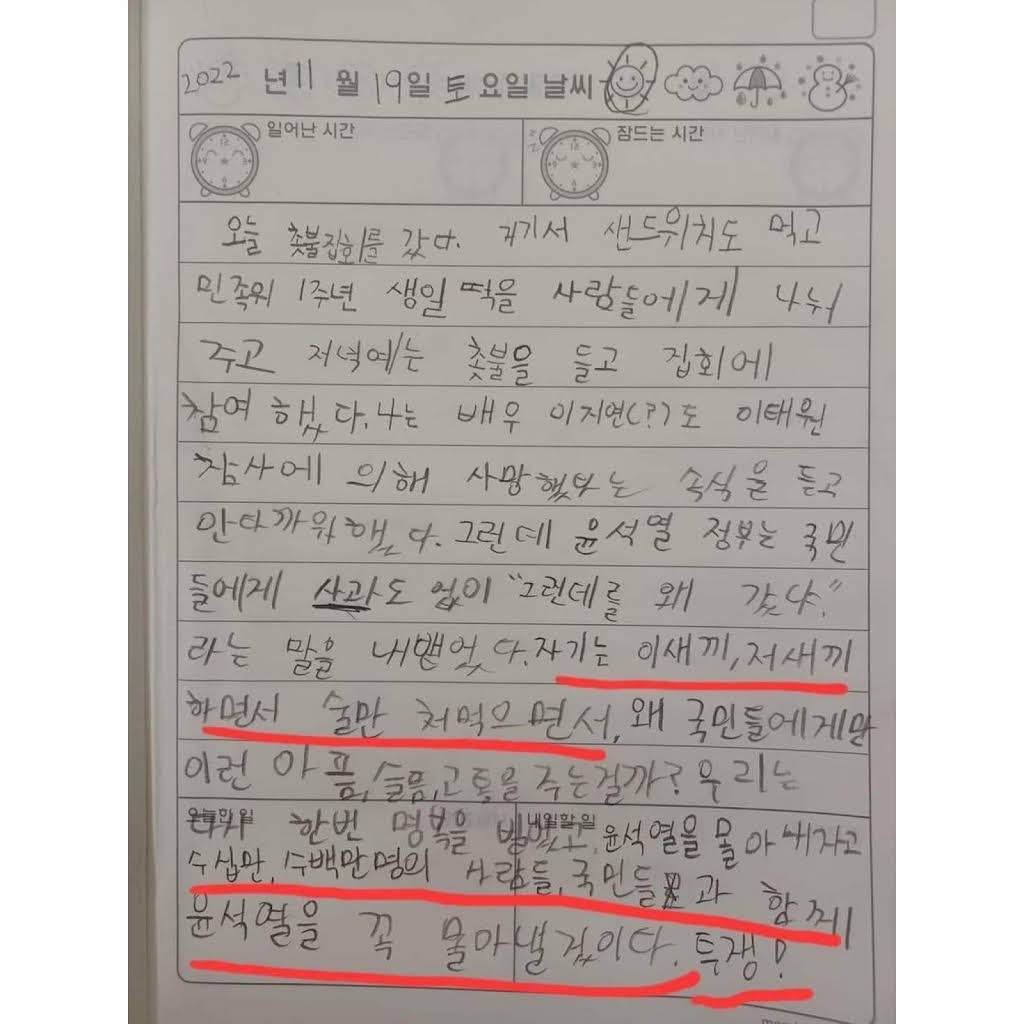 2022 년 11 월 19일 토요일 날씨
일어난 시간
잠드는 시간
오늘 촛불집회를 갔다. 거기서 샌드위치도 먹고
민족위 1주년 생일 떡을 사람들에게 나눠
주고 저녁에는 촛불을 들고 집회에
참여 했다. 나는 배우 이지연(?)도 이태원
참사에 의해 사망했다는 속식을 듣고
안타까워했다. 그런데 윤석열 정부는 국민
들에게 사과도 없이 "그런데를 왜 갔냐."
라는 말을 내뱉었다. 자기는 이새끼, 저새끼
하면서 술만 처먹으면서, 왜 국민들에게만
이런 아픔, 슬픔, 고통을 주는걸까? 우리는
오늘할 일
내일할 일
다시 한번 명복을 빌었고, 윤석열을 몰아내자고
수십만, 수백만명의 사람들, 국민들과 함께
윤석열을 꼭 몰아낼것이다. 투쟁!